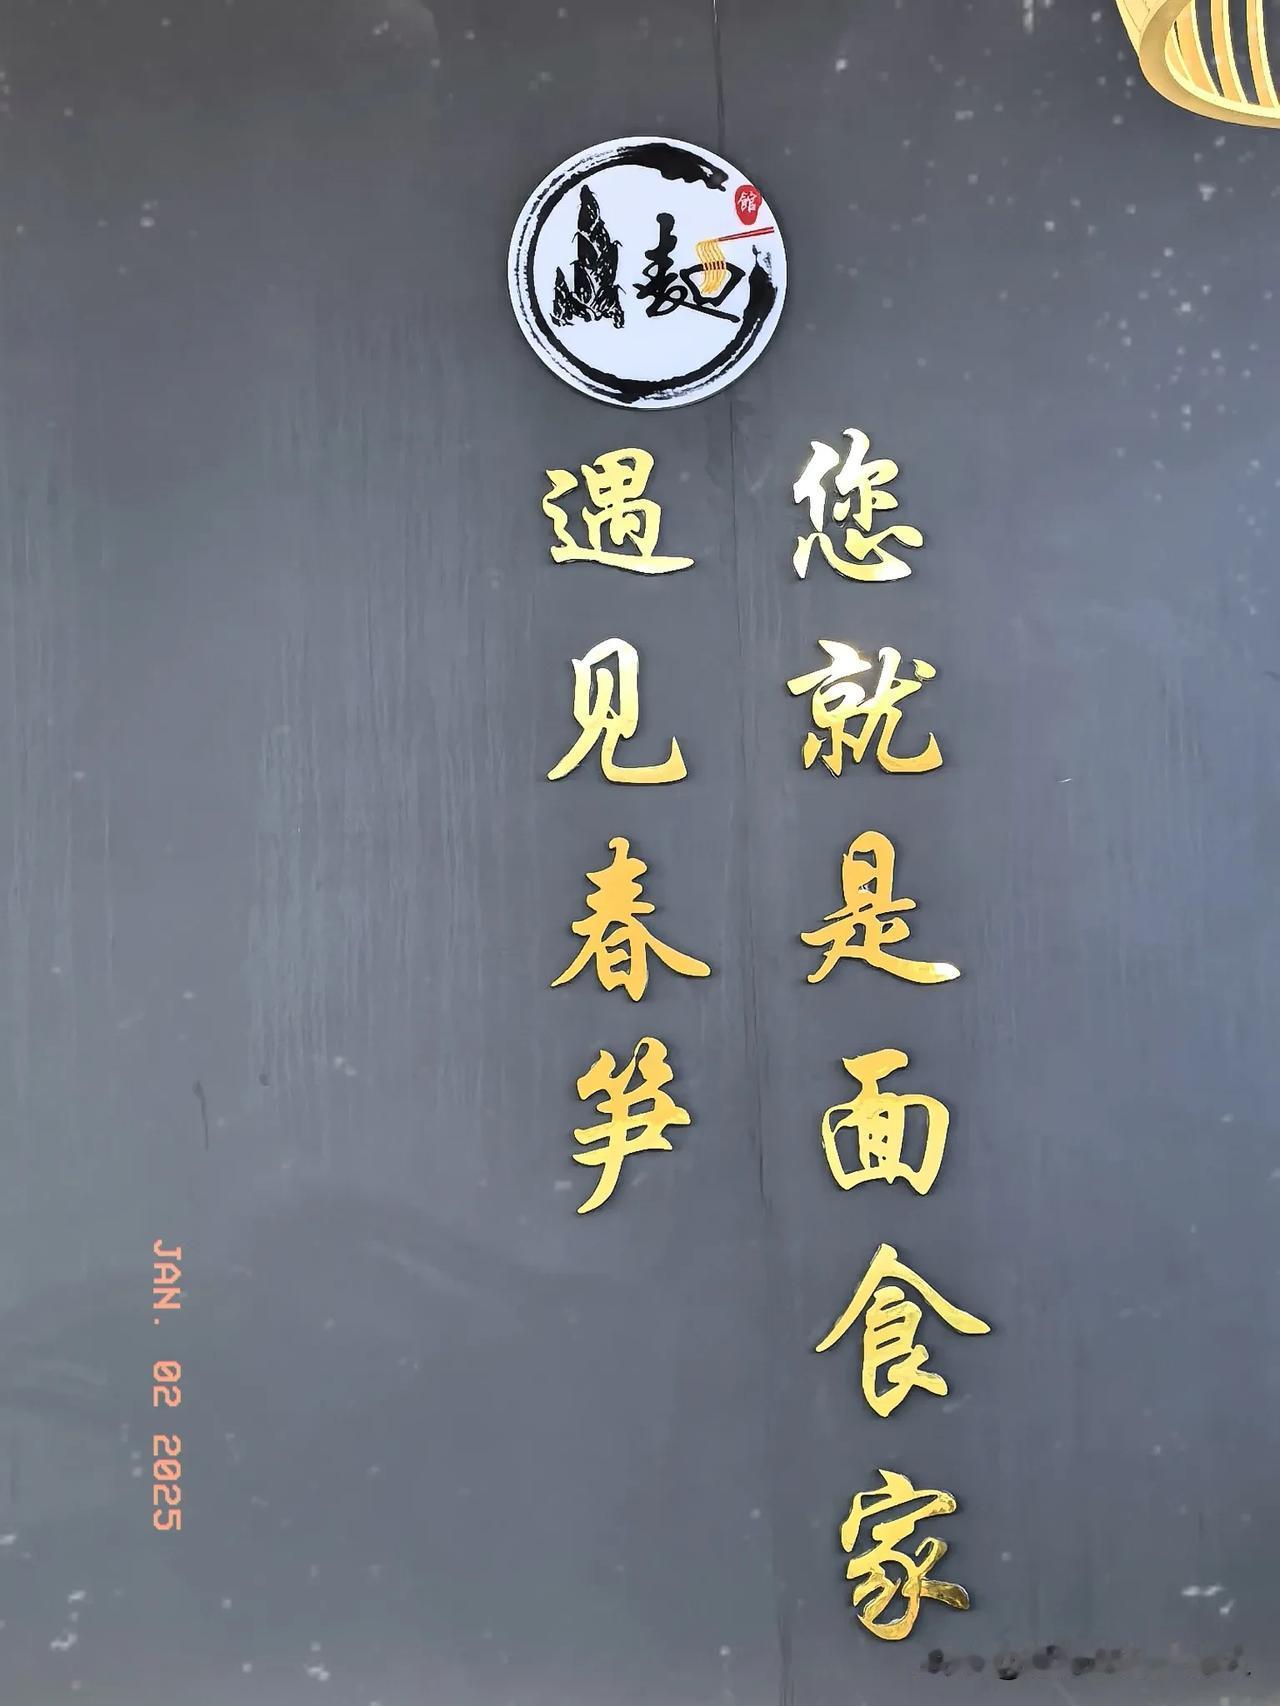 麺
館
遇见春笋
您就是面食家
JAN. 02 2025